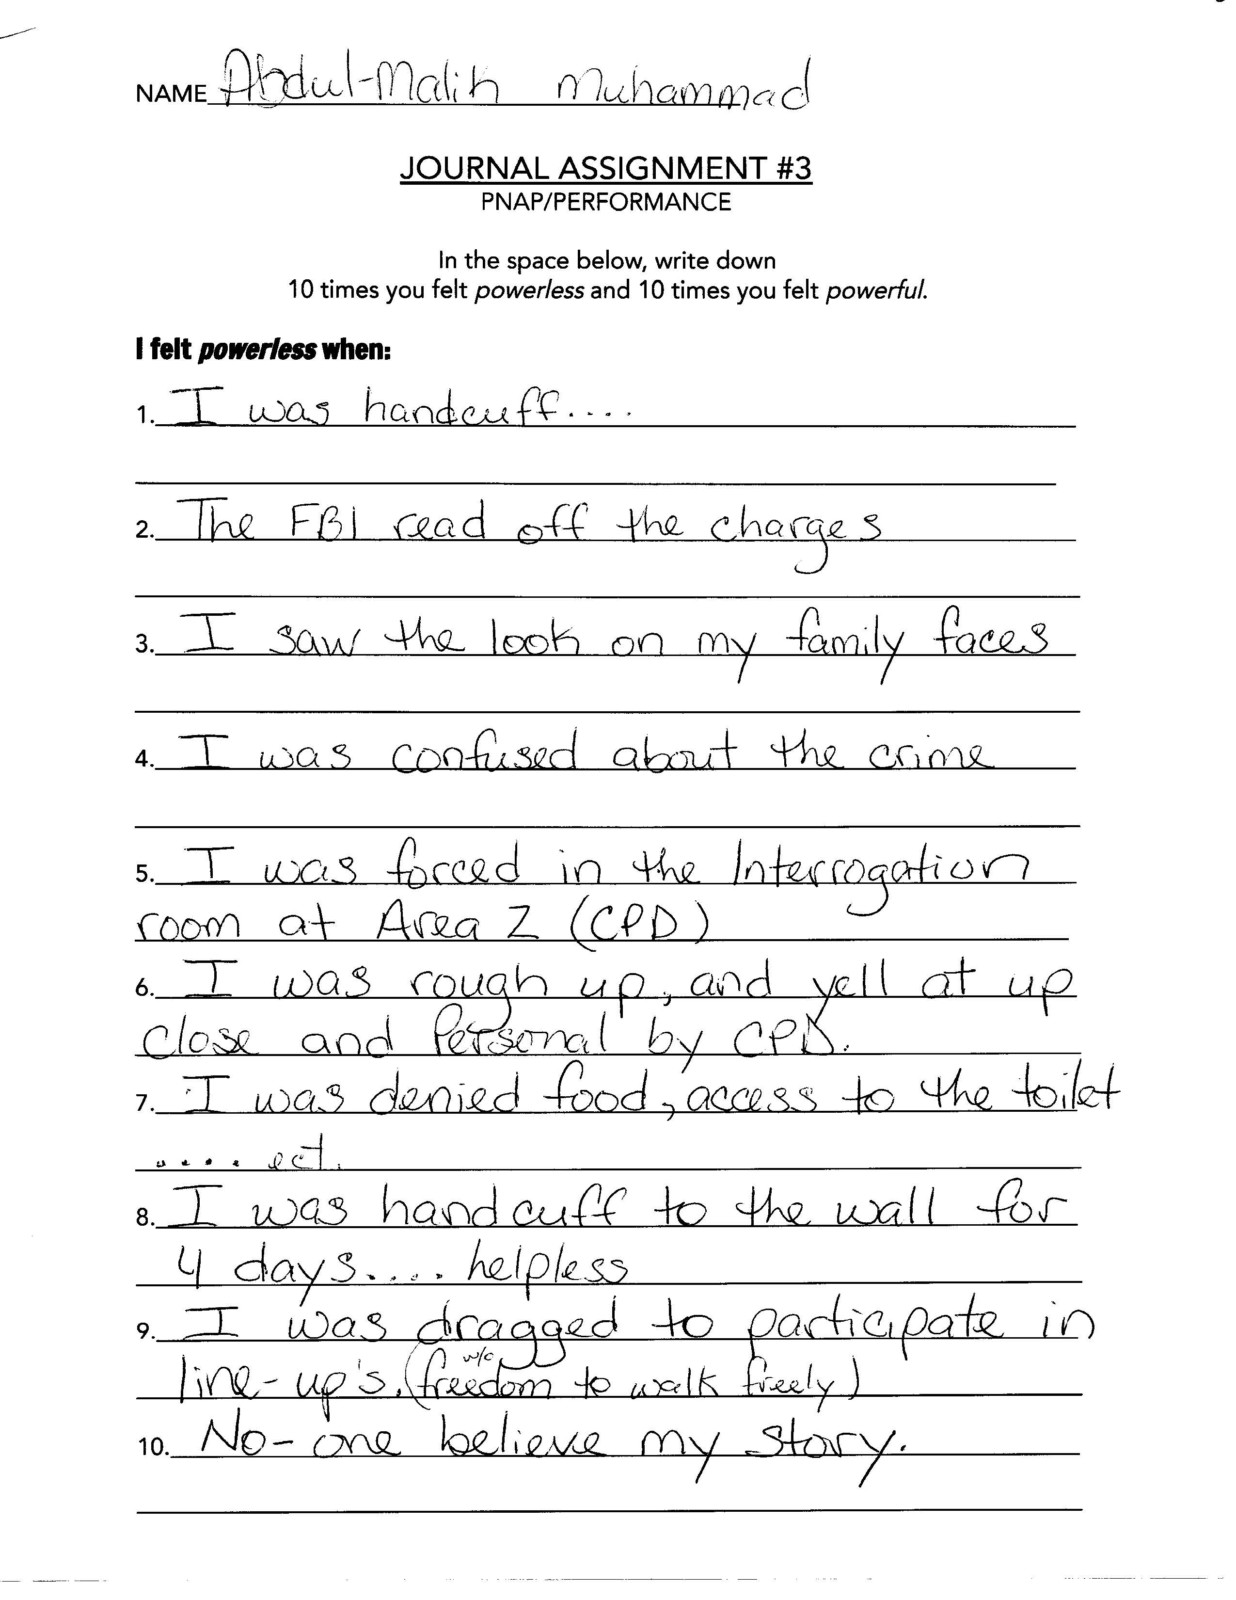 NAME Abdul-Malik Muhammad
JOURNAL ASSIGNMENT #3
PNAP/PERFORMANCE
In the space below, write down
10 times you felt powerless and 10 times you felt powerful.
I felt powerless when:
1. I was handcuff....
2. The FBI read off the charges
3. I saw the look on my family faces
4. I was confused about the crime
5. I was forced in the Interrogation
room at Area 2 (CPD)
6. I was rough up, and yell at up
close and Personal by CPD.
7. I was denied food, access to the toilet
.... ect.
8. I was handcuff to the wall for
4 days.... helpless
9. I was dragged to participate in
line-up's. (w/o freedom to walk freely)
10. No-one believe my story.